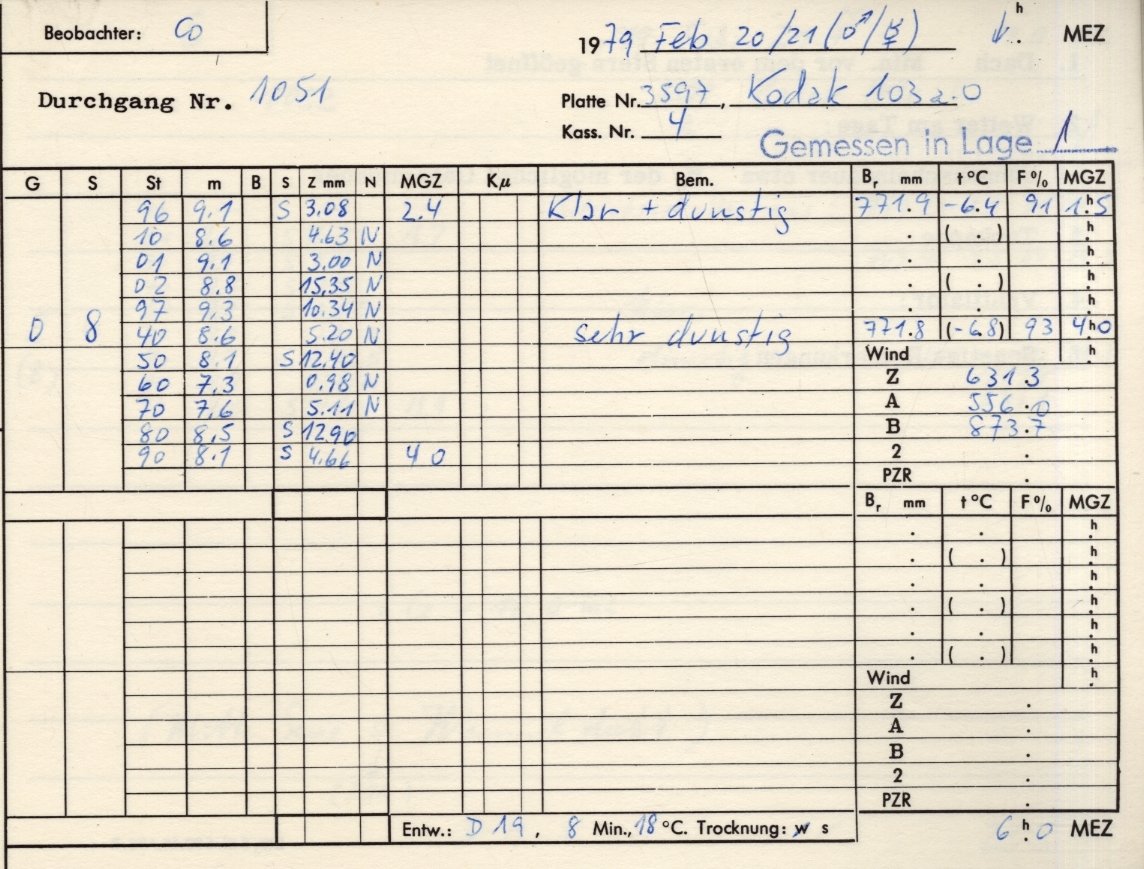 Beobachter: Co
1979 Feb 20/21 (♂/☿) h . MEZ
Durchgang Nr. 1051
Platte Nr. 3597, Kodak 103a-O
Kass. Nr. 4
Gemessen in Lage 1
G S St m B S Z mm N MGZ Kμ Bem. Br mm t °C F % MGZ
96 9.1 S 3.08 2.4 Klar + dunstig 771.9 -6.4 91 1h5
10 8.6 4.63 N . ( . ) h
01 9.1 3.00 N . . h
02 8.8 15.35 N . ( . ) h
97 9.3 10.34 N . . h
0 8 40 8.6 5.20 N sehr dunstig 771.8 (-6.8) 93 4h0
50 8.1 S 12.40 Wind h
60 7.3 0.98 N Z 631.3
70 7.6 5.11 N A 556.0
80 8.5 S 12.90 B 873.7
90 8.1 S 4.66 4 0 2 .
PZR .
Br mm t °C F % MGZ
. . h
. ( . ) h
. . h
. ( . ) h
. . h
. ( . ) h
Wind h
Z .
A .
B .
2 .
PZR .
Entw.: D 19, 8 Min., 18 °C. Trocknung: w s
6 h 0 MEZ